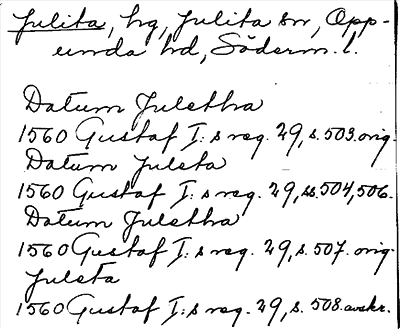 Julita, hg, Julita sn, Opp-
unda hd, Söderm. l.
Datum Juletha
1560 Gustaf I:s reg. 29, s. 503. orig.
Datum Juleta
1560 Gustaf I:s reg. 29, ss. 504, 506.
Datum Juletha
1560 Gustaf I:s reg. 29, s. 507. orig.
Juleta
1560 Gustaf I:s reg. 29, s. 508. avskr.